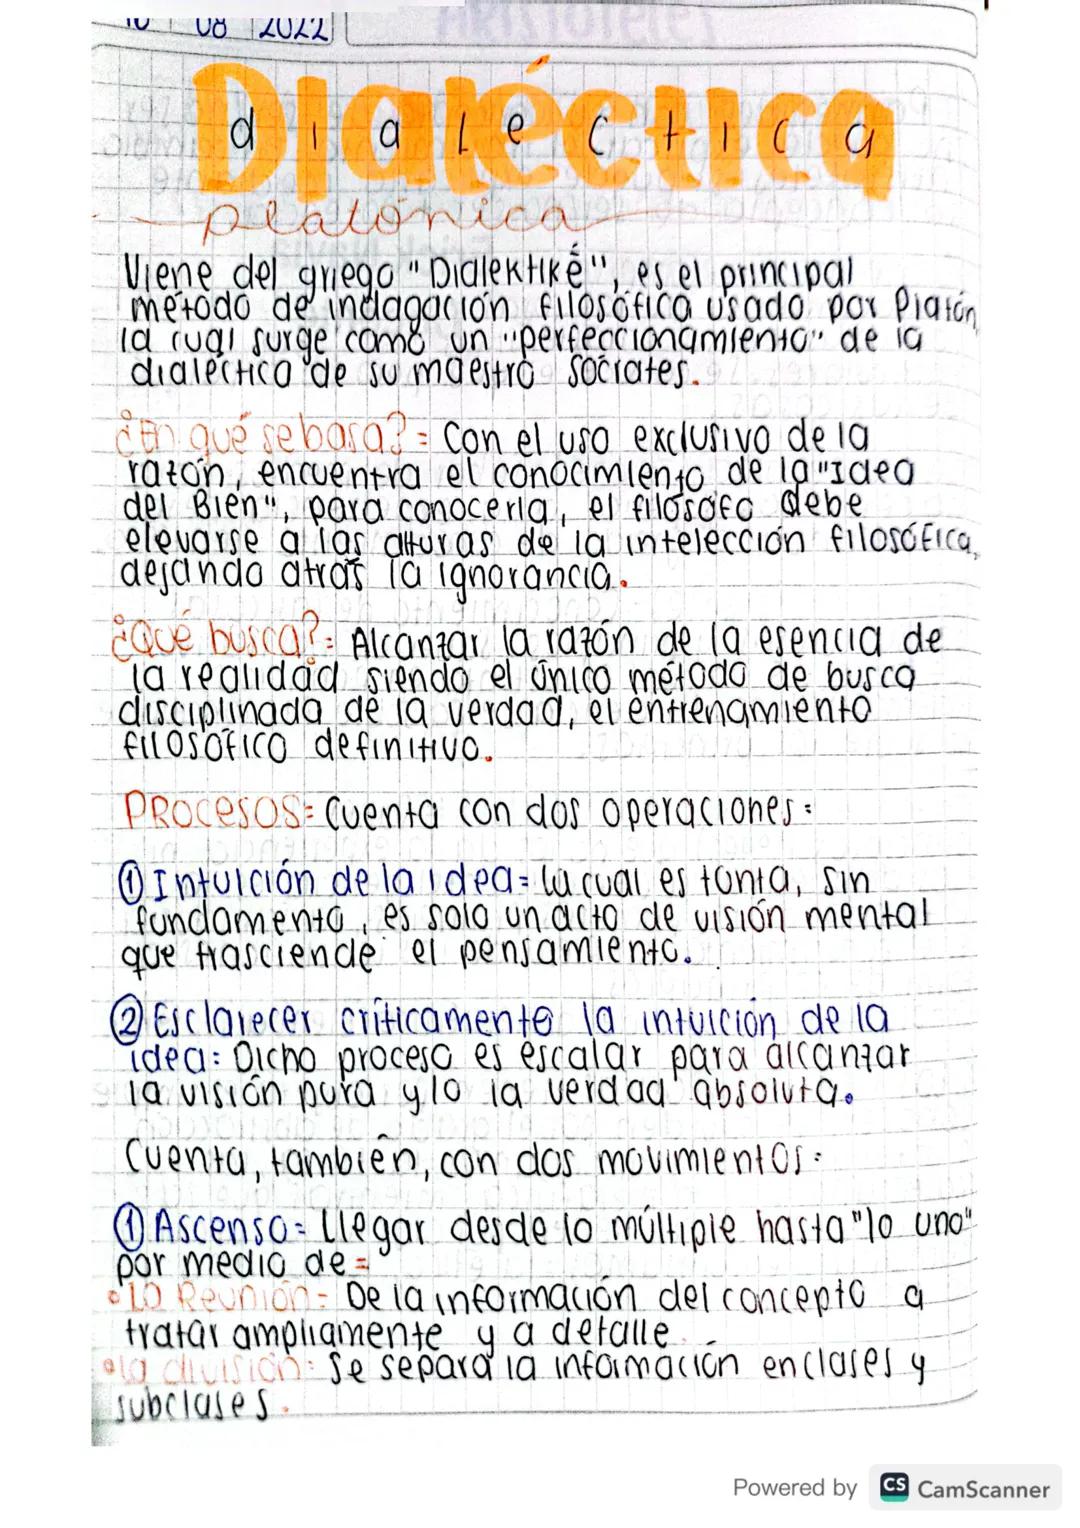 10 08 2022
Dialéctica
dialéctica
platónica
Viene del griego "Dialektiké", es el principal
método de indagación filosófica usado por Platón,
la cual surge como un "perfeccionamiento" de la
dialéctica de su maestro Sócrates.
¿En qué se basa?: Con el uso exclusivo de la
razón, encuentra el conocimiento de la "Idea
del Bien", para conocerla, el filósofo debe
elevarse a las alturas de la intelección filosófica,
dejando atrás la ignorancia.
¿Qué busca?: Alcanzar la razón de la esencia de
la realidad siendo el único método de busca
disciplinada de la verdad, el entrenamiento
filosófico definitivo.
PROCESOS: Cuenta con dos operaciones:
① Intuición de la idea: La cual es tonta, sin
fundamento, es solo un acto de visión mental
que trasciende el pensamiento.
② Esclarecer críticamente la intuición de la
idea: Dicho proceso es escalar para alcanzar
la visión pura y/o la verdad absoluta.
Cuenta, también, con dos movimientos:
① Ascenso: Llegar desde lo múltiple hasta "lo uno"
por medio de:
• La Reunión: De la información del concepto a
tratar ampliamente y a detalle.
• la división: Se separa la información en clases y
subclases.
Powered by CS CamScanner